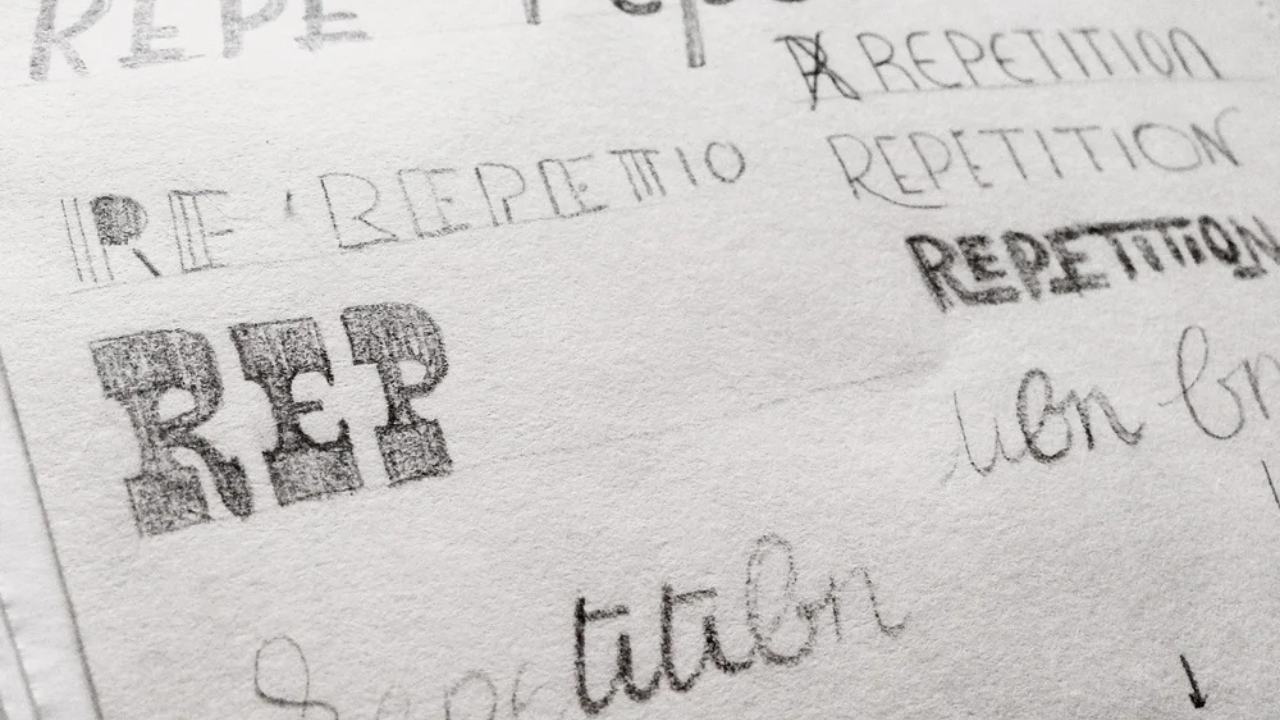 REPE repe
R REPETITION
RE REPETTIO
REPETITION
REPETITION
REP
ition
Repetition